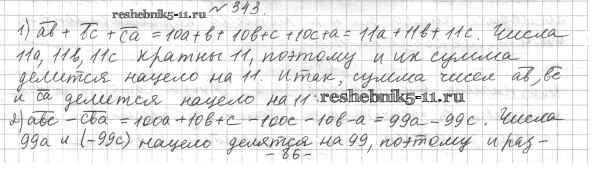 № 343.
reshebnik5-11.ru
1) ab + bc + ca = 10a + b + 10b + c + 10c + a = 11a + 11b + 11c. Числа
11a, 11b, 11c кратны 11, поэтому и их сумма
делится нацело на 11. Итак, сумма чисел ab, bc
и ca делится нацело на 11
reshebnik5-11.ru
2) abc - cba = 100a + 10b + c - 100c - 10b - a = 99a - 99c. Числа
99a и (-99c) нацело делятся на 99, поэтому и раз-
- 86 -